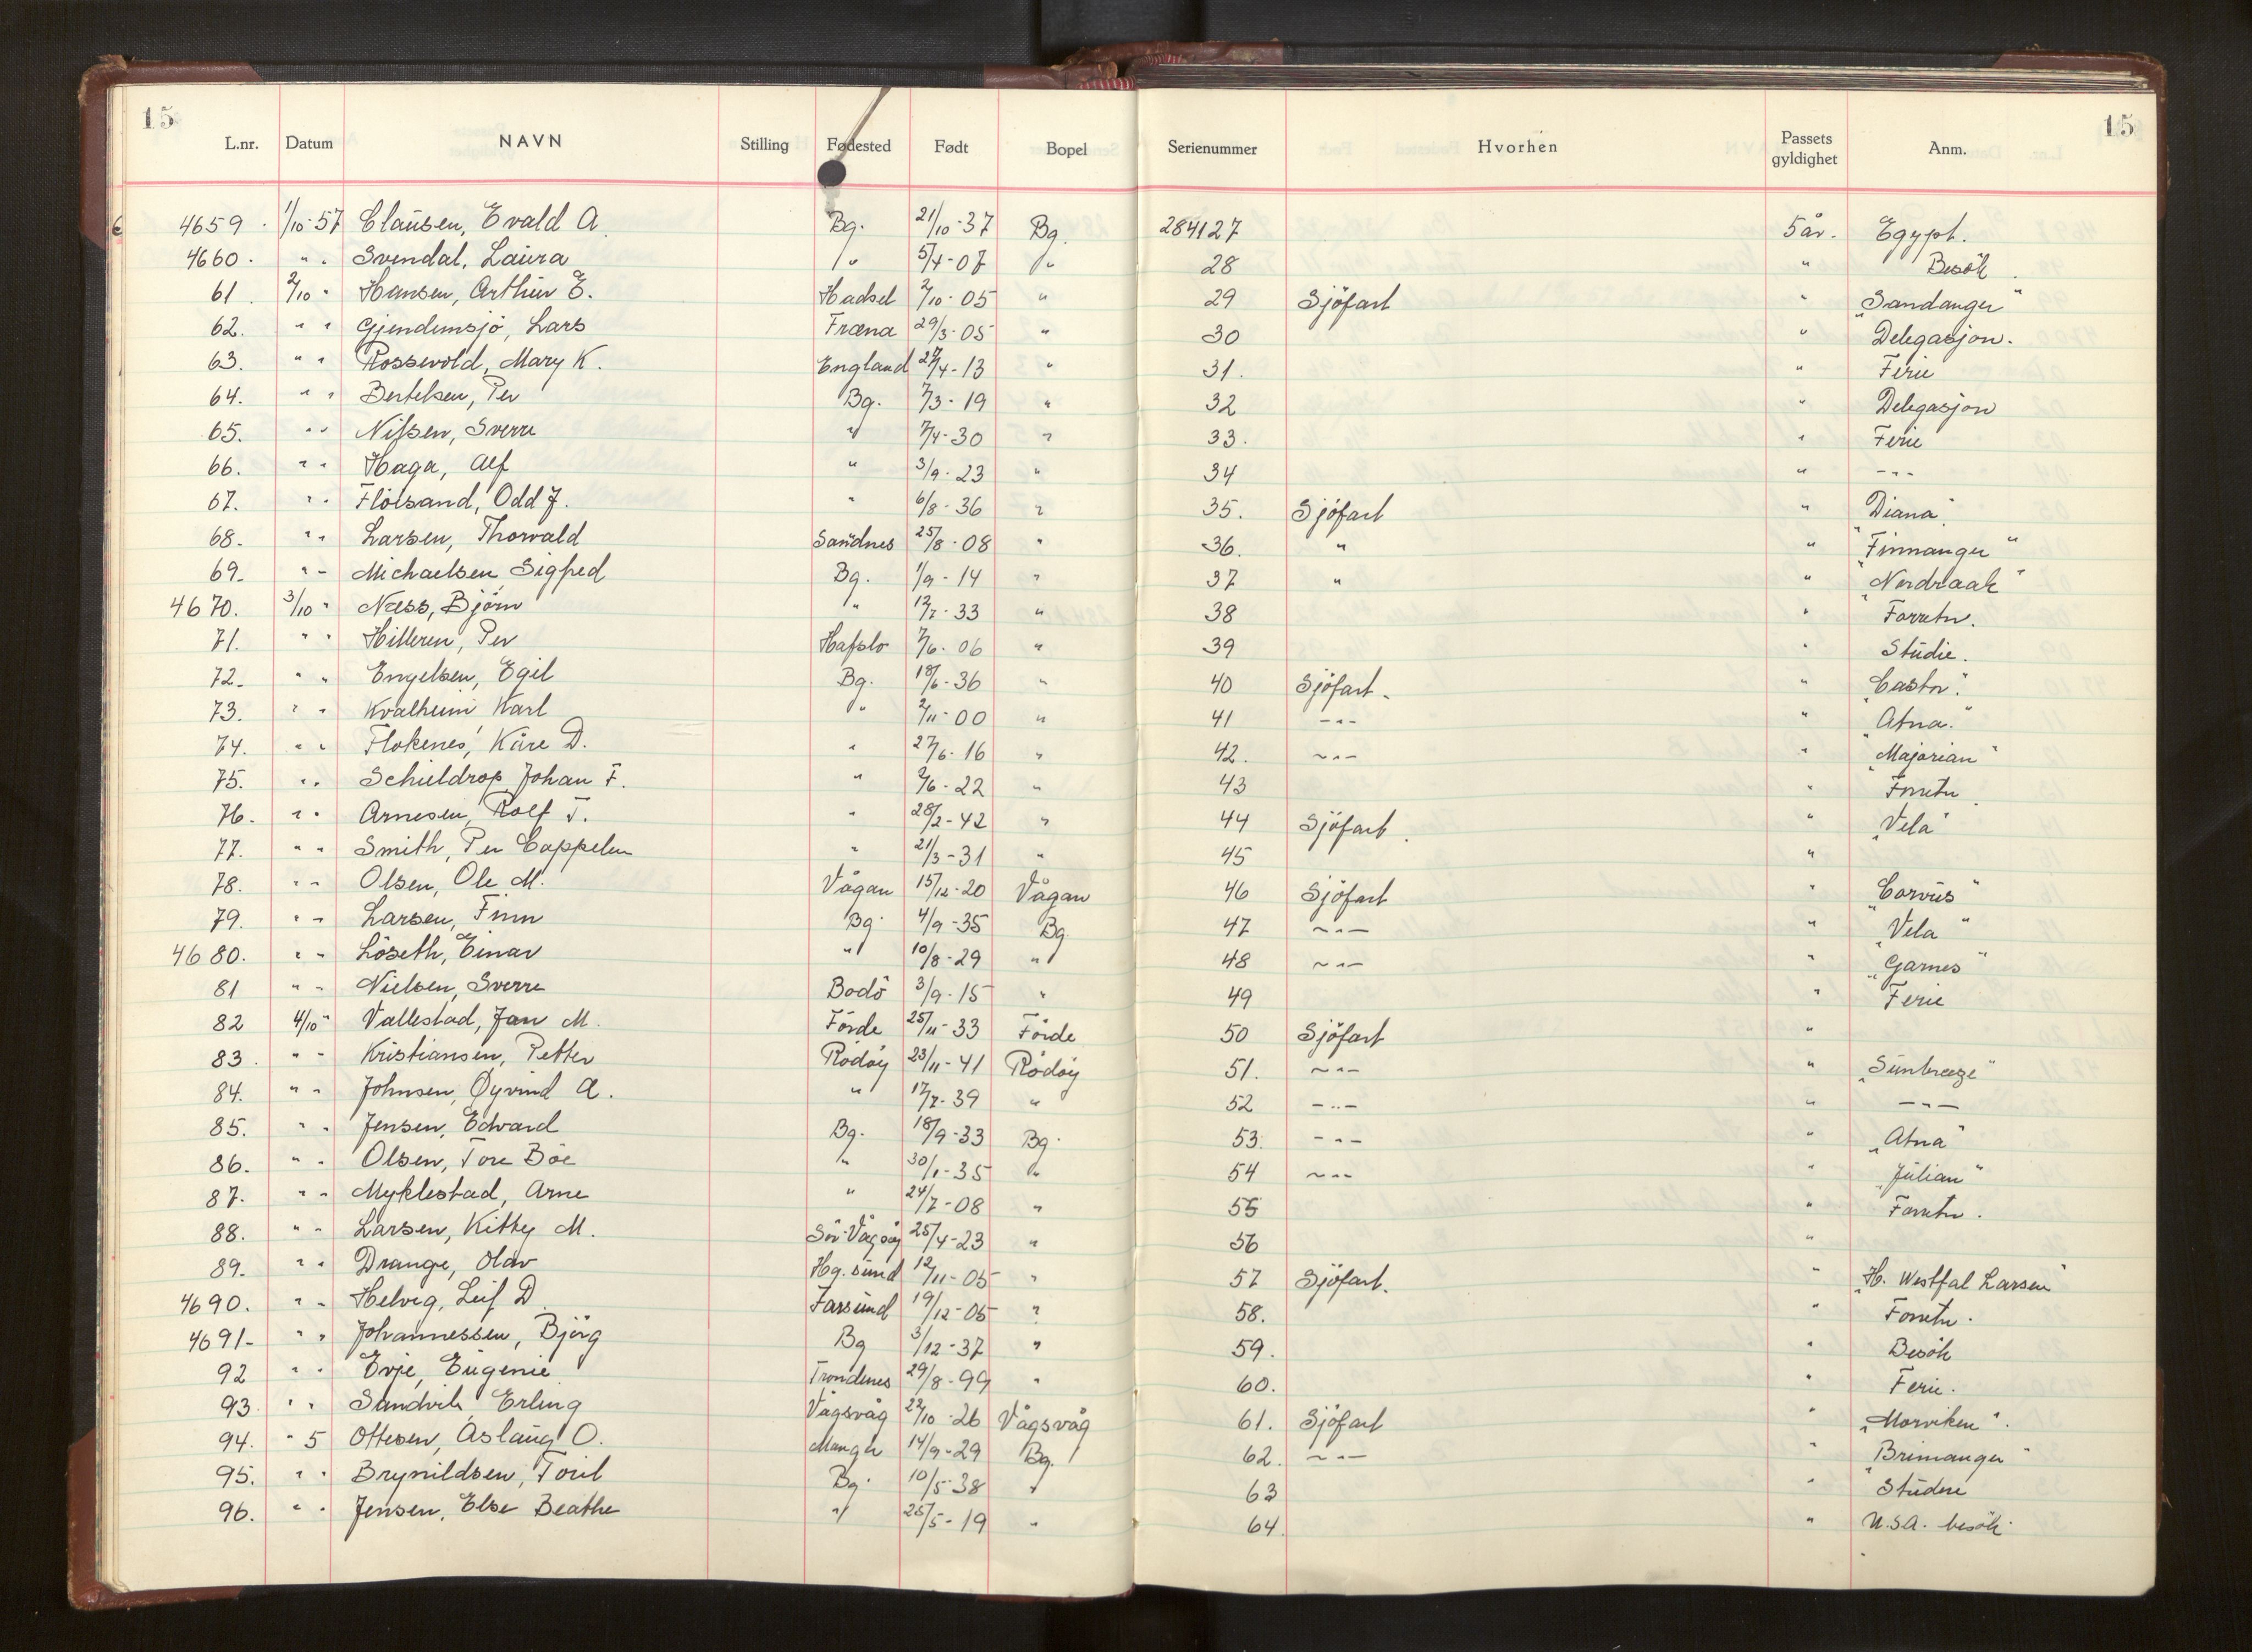 15 15
L.nr. Datum NAVN Stilling Fødested Født Bopel Serienummer Hvorhen Passets gyldighet Anm.
4659. 1/10-57 Clausen, Evald A. Bg. 21/10-37 Bg. 284127 5 år. Egypt.
4660. " " Svendal, Laura " 5/4-07 " 28 " Besök.
61. 2/10 " Hansen, Arthur E. Hadsel 2/10-05 " 29 Sjöfart " "Sandanger"
62. " " Gjendemsjö, Lars Fræna 29/3-05 " 30 " Delegasjon.
63. " " Rossevold, Mary K. England 27/4-13 " 31. " Ferie
64. " " Bertelsen, Per Bg. 7/3-19 " 32 " Delegasjon
65. " " Nilssen, Sverre " 7/4-30 " 33. " Ferie
66. " " Haga, Alf " 3/9-23 " 34 " -"-
67. " " Flöisand, Odd J. " 6/8-36 " 35. Sjöfart " "Diana"
68. " " Larsen, Thorvald Sandnes 25/8-08 " 36. " " "Finnanger"
69. " " Michaelsen, Sigfred Bg. 1/9-14 " 37 " " "Nordraak"
4670. 3/10 " Næss, Björn " 12/7-33 " 38 " Forretn.
71. " " Hilleren, Per Hafslo 7/6-06 " 39 " Studie.
72. " " Engelsen, Egil Bg. 18/6-36 " 40 Sjöfart. " "Castor".
73. " " Kvalheim Karl " 2/11-00 " 41 -"- " "Atna."
74. " " Flokenes, Kåre D. " 27/6-16 " 42. -"- " "Majorian"
75. " " Schieldrop Johan F. " 2/6-22 " 43 " Forretn.
76. " " Arnesen, Rolf T. " 28/2-42 " 44 Sjöfart. " "Vela"
77. " " Smith, Per Cappelen " 21/3-31 " 45 "
78. " " Olsen, Ole M. Vågan 15/12-20 Vågan 46 Sjöfart " "Corvus"
79. " " Larsen, Finn Bg. 4/9-35 Bg. 47 -"- " "Vela"
4680. " " Löseth, Einar " 10/8-29 " 48 -"- " "Garnes"
81 " " Nielsen, Sverre Bodö 3/9-15 " 49 " Ferie
82 4/10 " Vallestad, Jan M. Förde 25/11-33 Förde 50 Sjöfart "
83. " " Kristiansen, Petter Rödöy 23/11-41 Rödöy 51. -"- " "Sunbreeze"
84. " " Johnsen, Øyvind A. " 17/7-39 " 52 -"- " -"-
85. " " Jensen, Edvard Bg. 18/9-33 Bg. 53. -"- " "Atna"
86. " " Olsen, Tore Böe " 30/1-35 " 54 -"- " "Julian"
87. " " Myklestad, Arne " 24/7-08 " 55 " Forretn.
88. " " Larsen, Kitty M. Sör-Vågsöy 25/4-23 " 56 "
89. " " Drange, Olav Hg.sund 12/11-05 " 57 Sjöfart. " "H. Westfal Larsen"
4690. " " Helvig, Leif D. Farsund 19/12-05 " 58. " Forretn.
4691. " " Johannessen, Björg Bg 3/12-37 " 59. " Besök
92 " " Evje, Eugenie Trondenes 29/8-99 " 60. " Ferie.
93. " " Sandvik Erling Vågsvåg 22/10-26 Vågsvåg 61. Sjöfart " "Morviken".
94. " 5 Ottesen, Aslaug O. Manger 14/9-29 Bg. 62. -"- " "Brimanger"
95. " " Brynildsen, Toril Bg. 10/5-38 " 63 " Studere
96. " " Jensen, Else Beathe " 25/5-19 " 64. " U.S.A. besök.